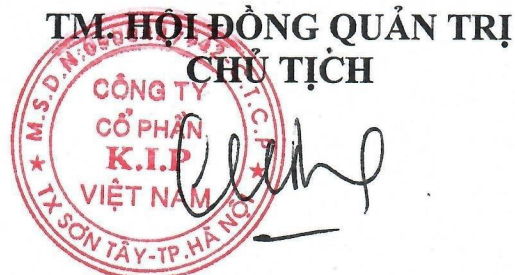 TM. HỘI ĐỒNG QUẢN TRỊ
CHỦ TỊCH
CÔNG TY
CỔ PHẦN
K.I.P
VIỆT NAM
TX SƠN TÂY-TP.HÀ NỘI